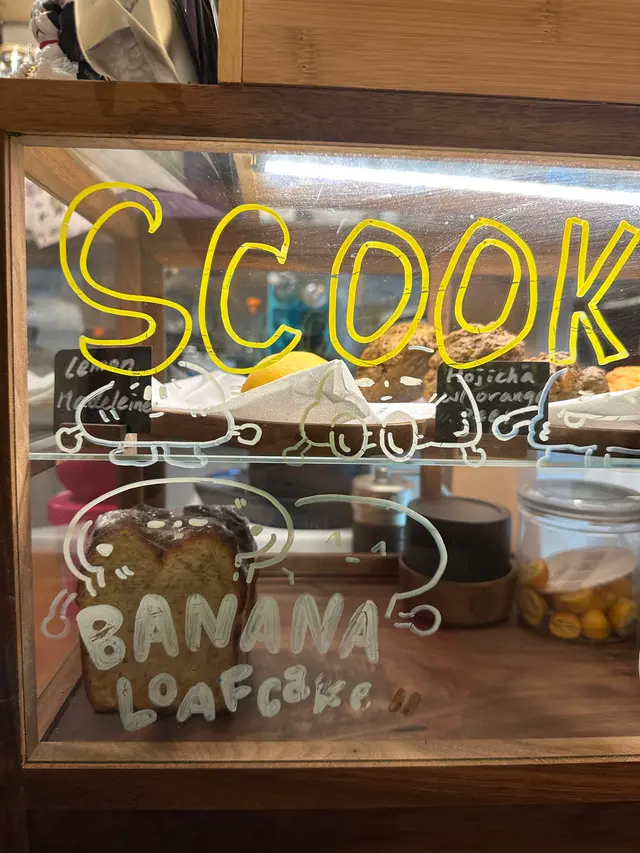 SCOOK
Lemon
Madeleine
Hojicha
w/ orange
BANANA
LOAFCake